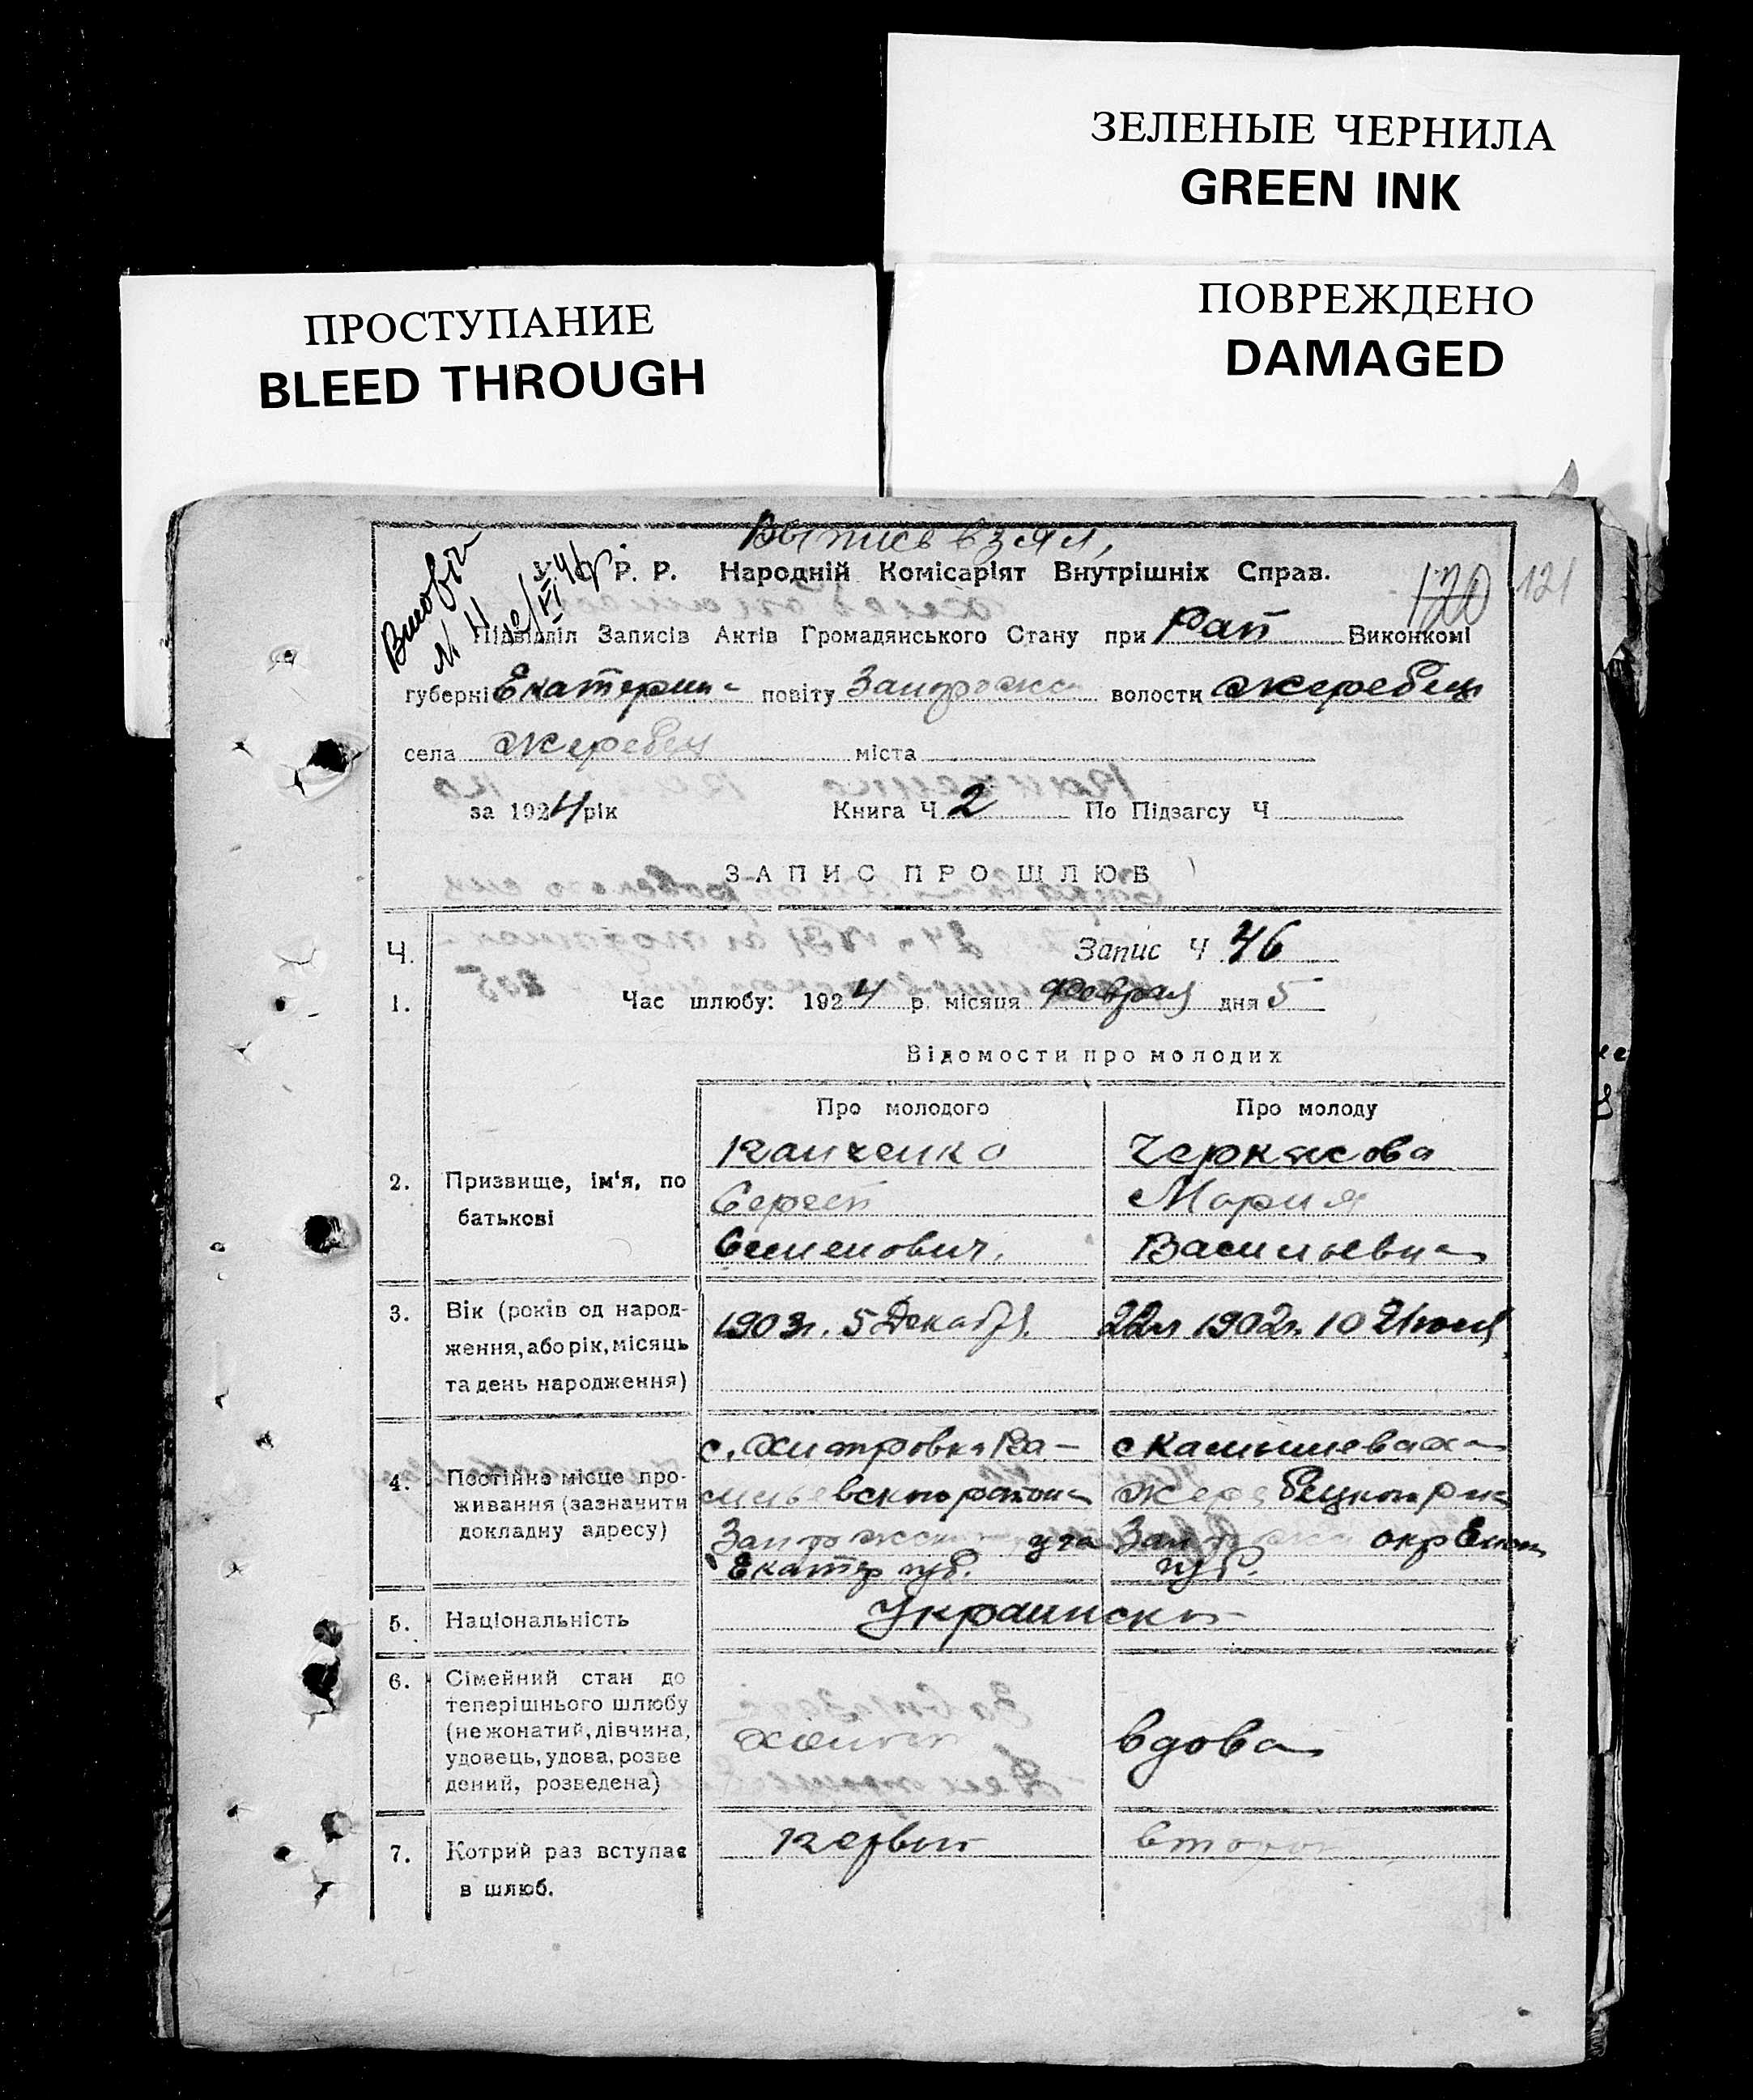 ЗЕЛЕНЫЕ ЧЕРНИЛА
GREEN INK
ПОВРЕЖДЕНО
DAMAGED
ПРОСТУПАНИЕ
BLEED THROUGH
Выпись взял,
Р. Р. Народній Комісаріят Внутрішніх Справ.
120 121
Підвідділ Записів Актів Громадянського Стану при Рай Виконкомі
губерні Екатерин повіту Запорожск волости Жеребец
села Жеребец міста
за 1924 рік Книга Ч 2 По Підзагсу Ч
ЗАПИС ПРО ШЛЮБ
Ч. Запис Ч 46
1. Час шлюбу: 1924 р. місяця Февраля дня 5
Відомости про молодих
Про молодого Про молоду
Панченко Черкасова
2. Призвище, ім'я, по Сергей Мария
батькові Семенович. Васильевна
3. Вік (років од народ- 1903г. 5 Декабря. 22л 1902г. 10 Июля
ження, або рік, місяць
та день народження)
с. Хитровка Ва- с Камышеваха
4. Постійне місце про- сильевского района Жеребецкого р-на
живання (зазначити
докладну адресу) Запорожск у-га окр Екат
Екатер губ. губ.
5. Національність Украинская
6. Сімейний стан до
теперішнього шлюбу
(не жонатий, дівчина, Холост вдова
удовець, удова, розве
дений, розведена)
7. Котрий раз вступає первый второй
в шлюб.